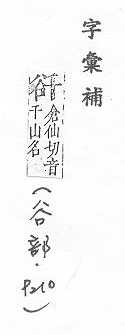 字彙補
谸倉仙切音
千山名
(谷部.P210)